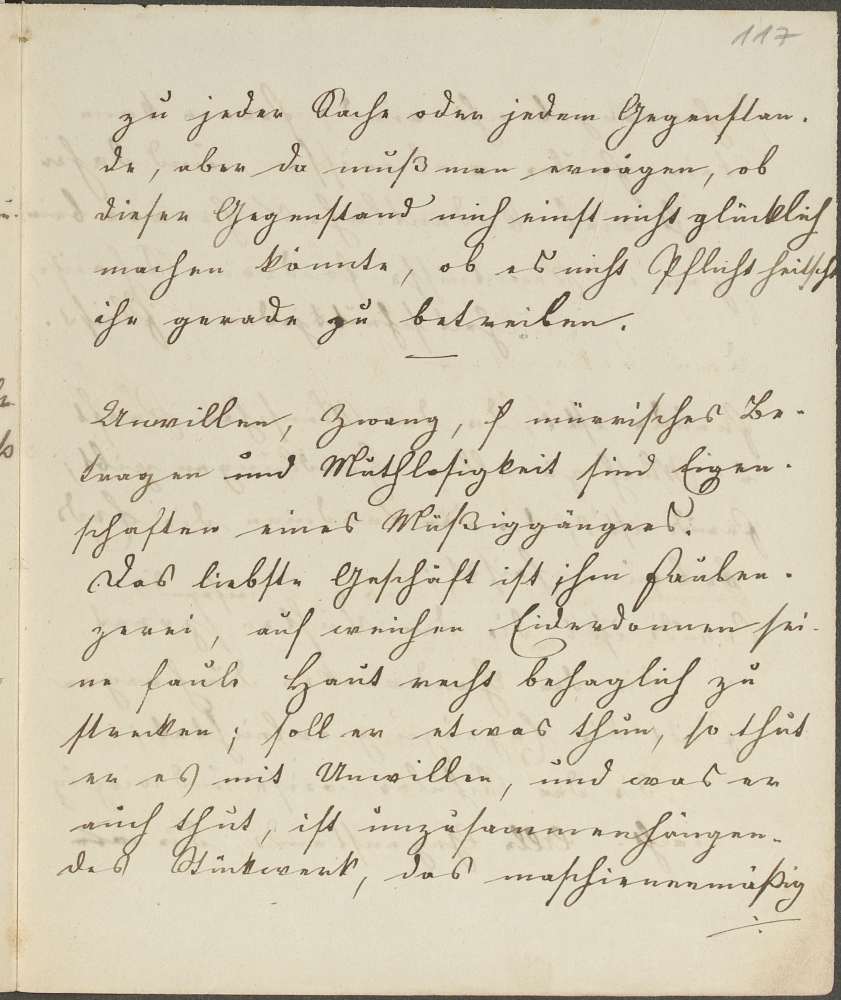 117
zu jeder Sache oder jedem Gegenstan-
de, aber da muß man erwägen, ob
dieser Gegenstand mich einst nicht glücklich
machen könnte, ob es nicht Pflicht heischt
ihr gerade zu betreiben.
Unwillen, Zwang, mürrisches Be-
tragen und Muthlosigkeit sind Eigen-
schaften eines Müßiggängers.
Das liebste Geschäft ist ihm Faulen-
zerei, auf weichen Eiderdonnen sei-
ne faule Haut recht behaglich zu
strecken; soll er etwas thun, so thut
er es mit Unwillen, und was er
auch thut, ist unzusammenhängen-
des Stückwerk, das maschienenmäßig